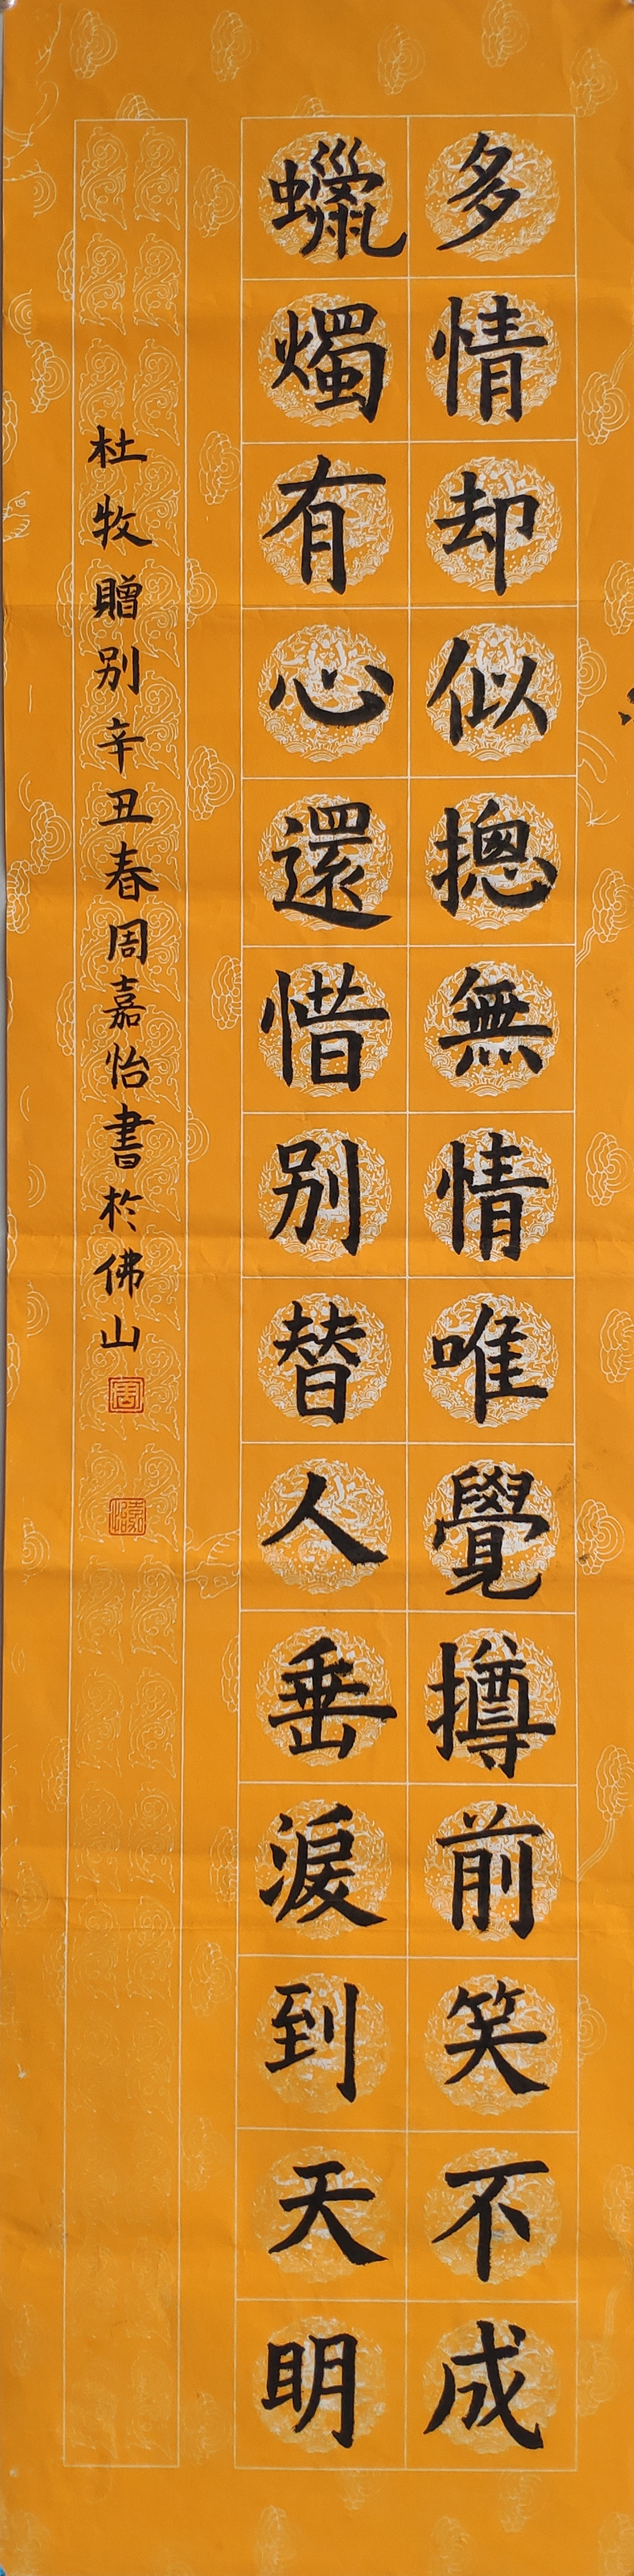 多情却似摠無情唯覺撙前笑不成
蠟燭有心還惜别替人垂淚到天明
杜牧贈别辛丑春周嘉怡書於佛山
周
嘉怡